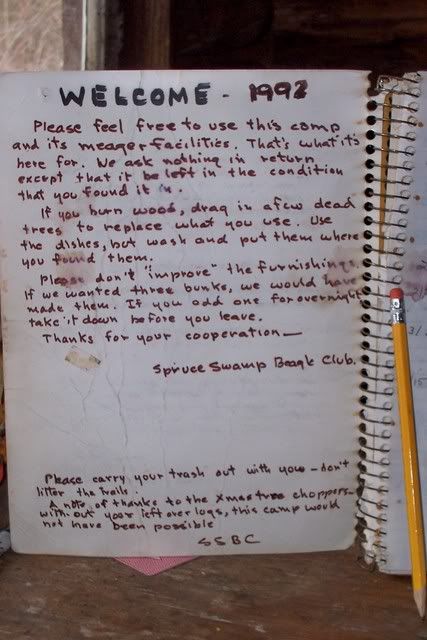 WELCOME - 1992
Please feel free to use this camp
and its meager facilities. That's what it's
here for. We ask nothing in return
except that it be left in the condition
that you found it in.
If you burn wood, drag in afew dead
trees to replace what you use. Use
the dishes, but wash and put them where
you found them.
Please don't "improve" the furnishings.
If we wanted three bunks, we would have
made them. If you add one for overnight
take it down before you leave.
Thanks for your cooperation—
Spruce Swamp Beagle Club.
Please carry your trash out with you - don't
litter the trails.
A note of thanks to the Xmas tree choppers-
with out your left over logs, this camp would
not have been possible
SSBC